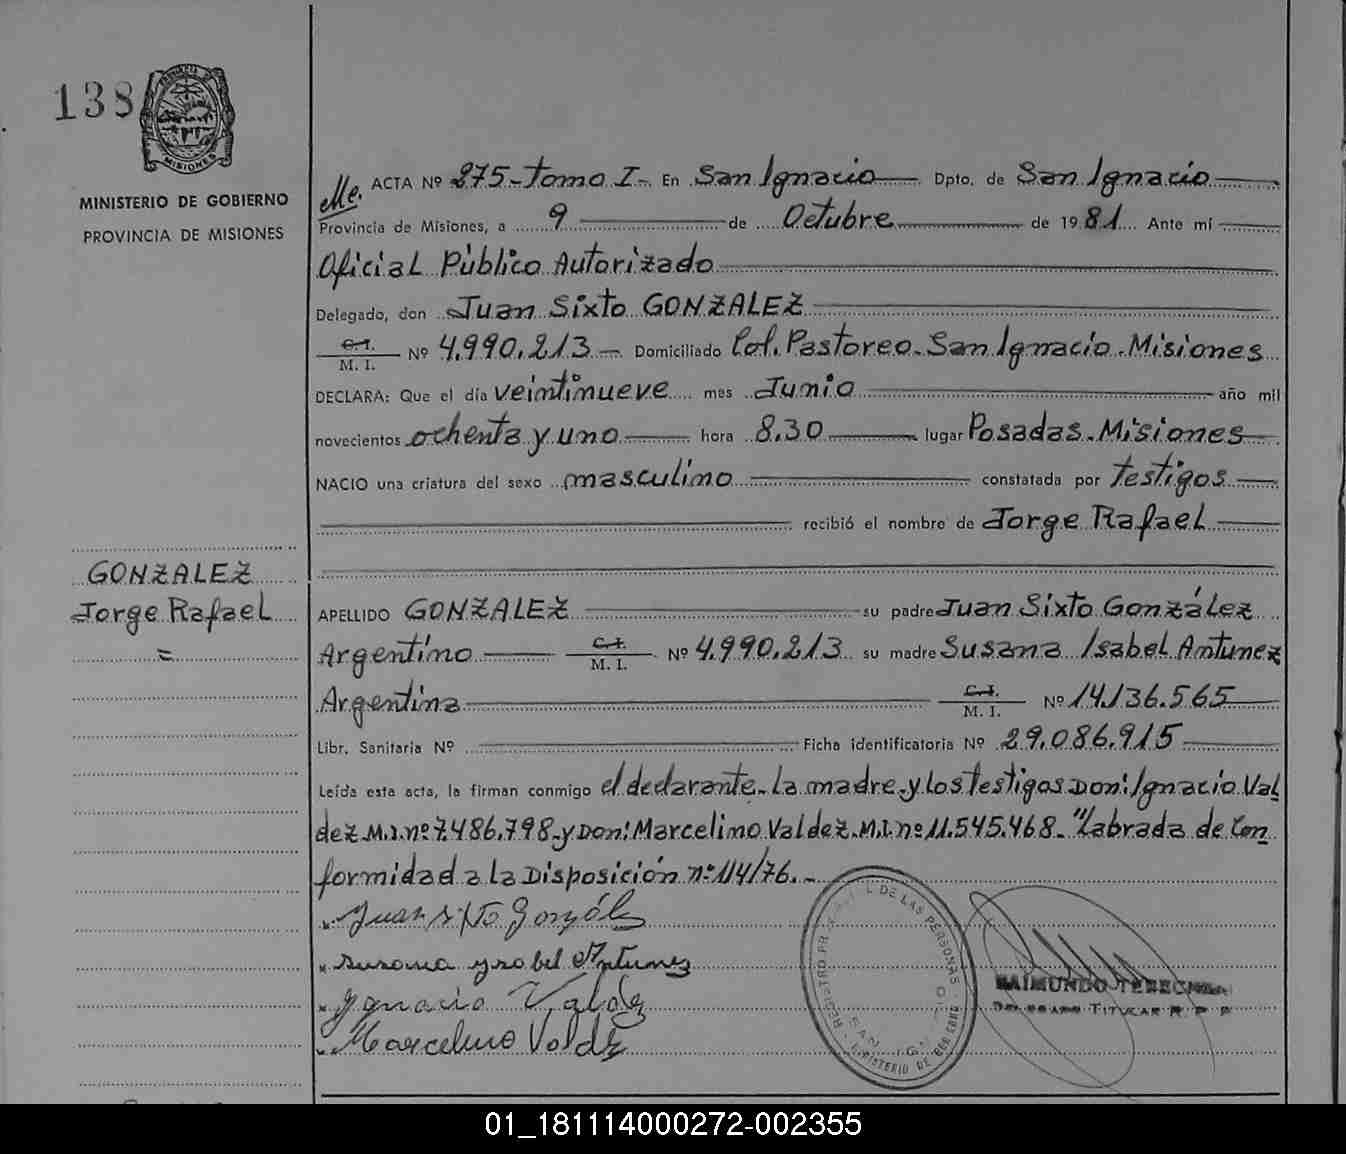 138
PROVINCIA DE
MISIONES
MINISTERIO DE GOBIERNO
PROVINCIA DE MISIONES
GONZALEZ
Jorge Rafael
=
Me. ACTA Nº 275-Tomo I-. En San Ignacio Dpto. de San Ignacio
Provincia de Misiones, a 9 de Octubre de 1981. Ante mi
Oficial Público Autorizado
Delegado, don Juan Sixto GONZALEZ
C.I.
M. I. Nº 4.990.213 Domiciliado Col. Pastoreo-San Ignacio-Misiones
DECLARA: Que el día veintinueve mes Junio año mil
novecientos ochenta y uno hora 8.30 lugar Posadas-Misiones
NACIO una criatura del sexo masculino constatada por testigos
recibió el nombre de Jorge Rafael
APELLIDO GONZALEZ su padre Juan Sixto González
Argentino C.I.
M. I. Nº 4.990.213 su madre Susana Isabel Antunez
Argentina C.I.
M. I. Nº 14.136.565
Libr. Sanitaria Nº Ficha identificatoria Nº 29.086.915
Leída esta acta, la firman conmigo el declarante-La madre-y los testigos Don: Ignacio Val
dez-M.I.nº7.486.798-y Don: Marcelino Valdez-M.I.nº11.545.468-"Labrada de Con
formidad a la Disposición nº:114/76.-
Juan Sixto González
Susana Ysabel Antunez
Ignacio Valdez
Marcelino Valdez
DE LAS PERSONAS
MINISTERIO DE GOBIERNO
RAIMUNDO
DELEGADO TITULAR R P P
01_181114000272-002355